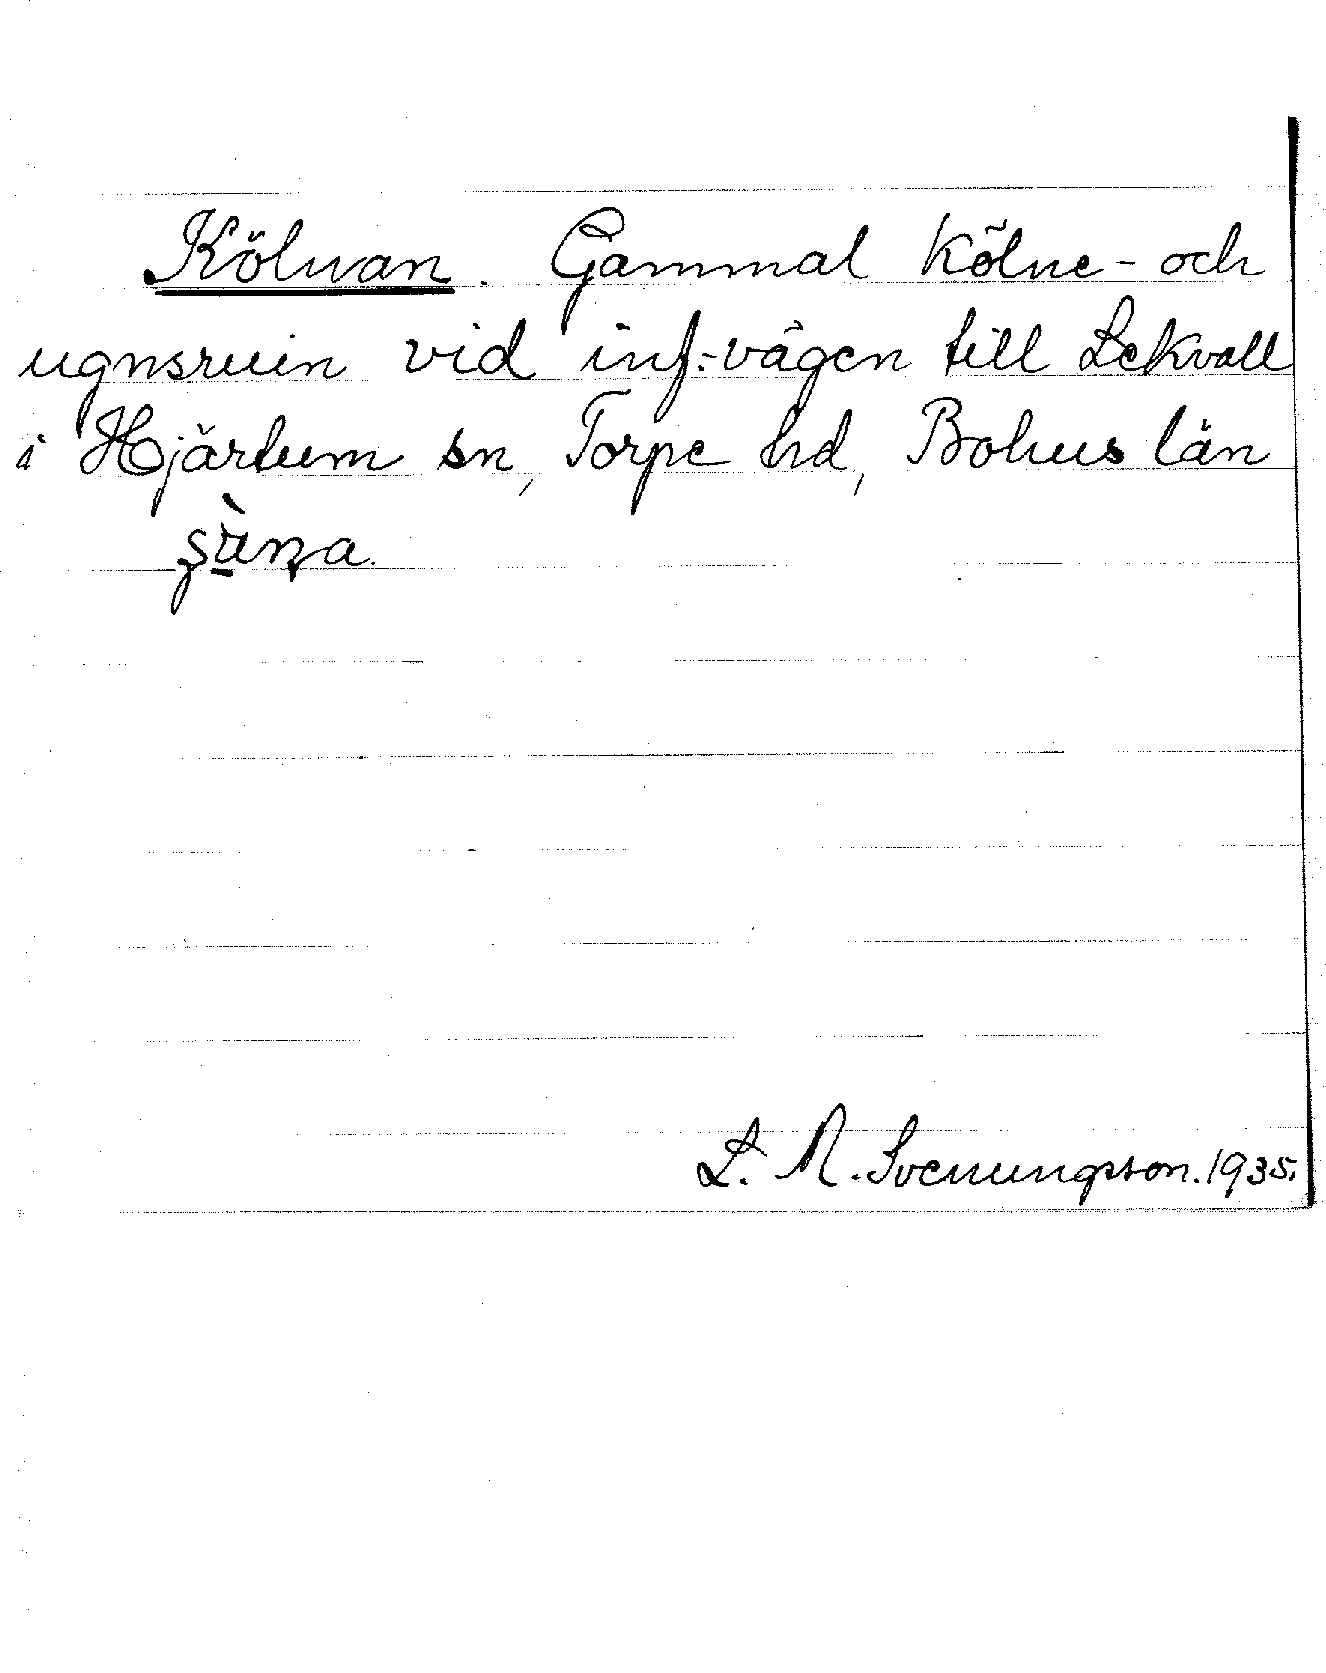 Kölnan. Gammal kölne- och
ugnsruin vid inf.-vägen till Lekvall
i Hjärtum sn, Torpe hd, Bohus län
L. M. Svenungsson. 1935.